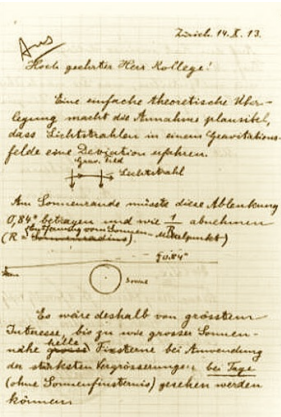 Zürich. 14. X. 13.
Hoch geehrter Herr Kollege!
Eine einfache theoretische Über-
legung macht die Annahme plausibel,
dass Lichtstrahlen in einem Gravitations-
felde eine Deviation erfahren.
Grav. Feld
Lichtstrahl
Am Sonnenrande müsste diese Ablenkung
0,84" betragen und wie 1/R abnehmen
(R = Sonnenradius Mittelpunkt)
0.84"
Sonne
Es wäre deshalb von grösstem
Interesse, bis zu wie grosser Sonnen-
nähe helle Fixsterne bei Anwendung
der stärksten Vergrösserungen bei Tage
(ohne Sonnenfinsternis) gesehen werden
können.